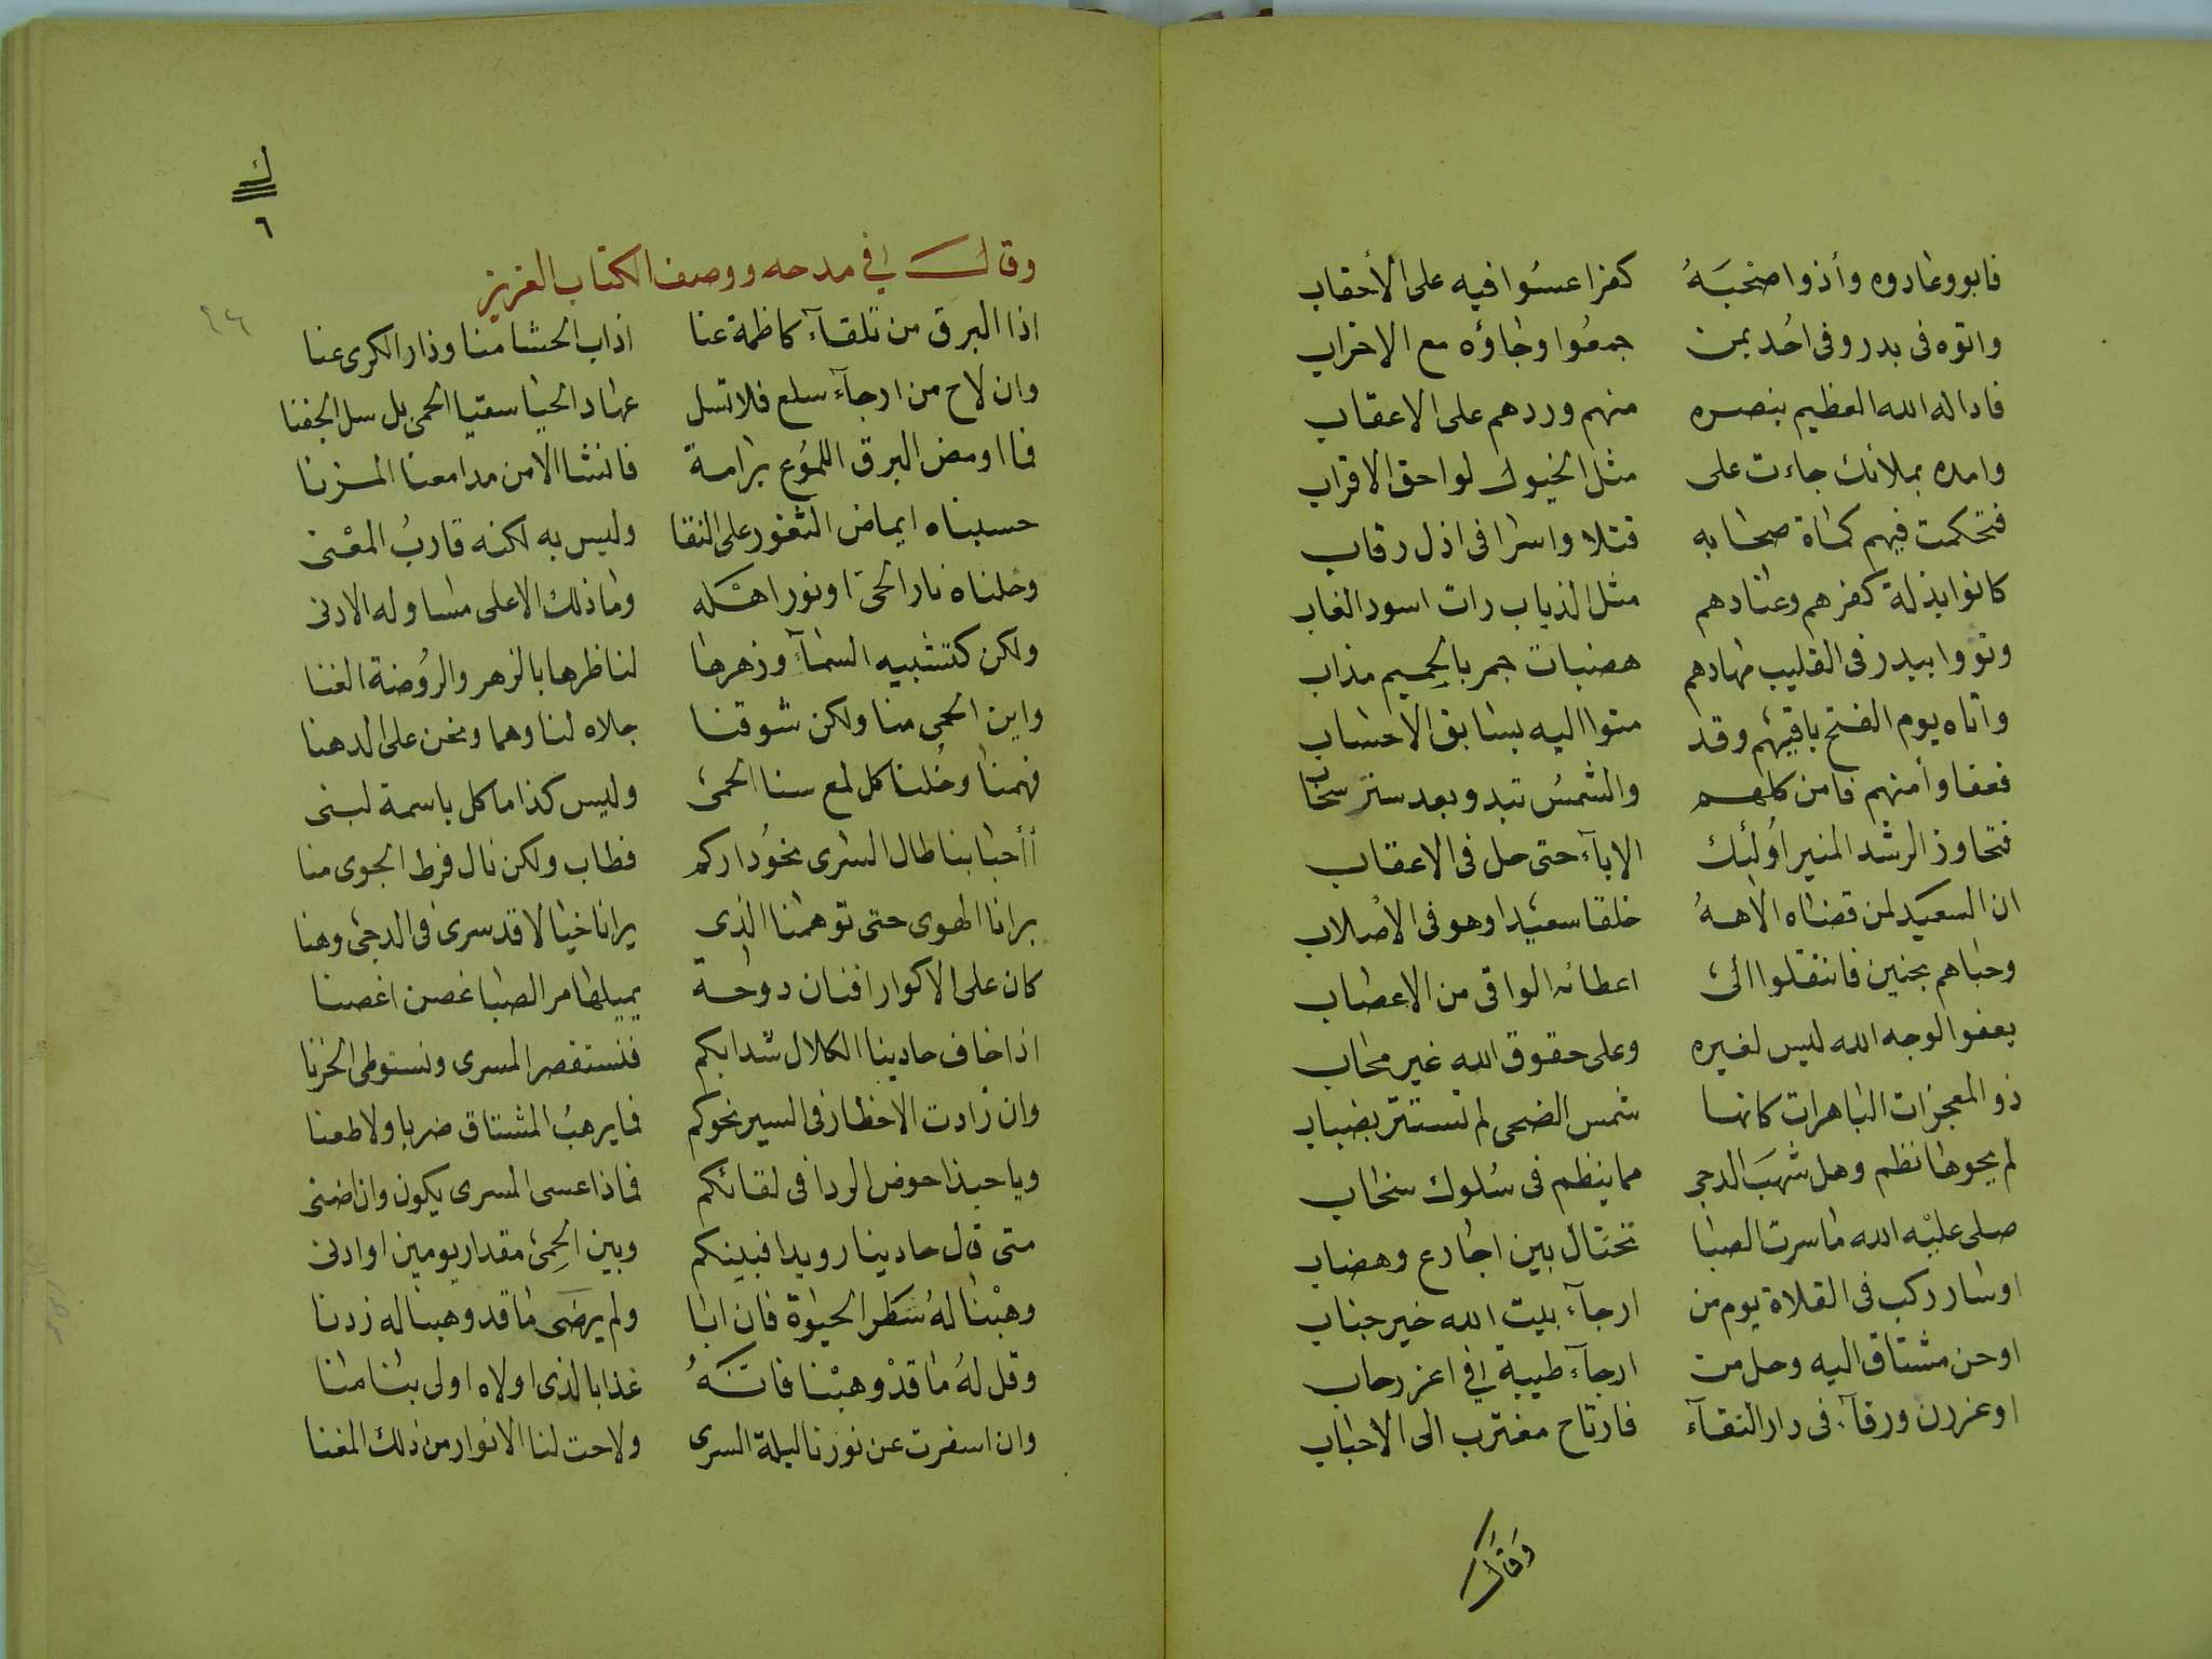 فابوو عادوه وأذوا صحْبَهُ كفرا عسُوا فيه على الأحقاب
واتوه فى بدر وفى اُحد بمن جمعُوا وجاؤه مع الاحزاب
فاداله الله العظيم بنصره منهم وردهم على الاعقاب
وامده بملائك جاءت على مثل الخيول لواحق الاقراب
فتحكمت فيهم كماة صحابه قتلا واسرا فى اذل رقاب
كانوا بذلة كفرهم وعنادهم مثل الذياب رات اسود الغاب
وثووا ببدر فى القليب مهادهم هضبات جمر بالحميم مذاب
وأتاه يوم الفتح باقيهم وقد متوا اليه بسابق الاحساب
فعفا وأمنهم فامن كلهم والشمسُ تبدو بعد ستر سحاب
فتجاوز الرشد المنير اوُلئك الاباء حتى حل فى الاعقاب
ان السعيد لمن قضاه الاههُ خلقا سعيدا وهو فى الأصلاب
وحباهم بحنين فانتقلوا الى اعطائه الواقى من الاعصاب
يعفو الوجه الله ليس لغيره وعلى حقوق الله غير محاب
ذو المعجزات الباهرات كانها شمس الضحى لم تستتر بضباب
لم يحوها نظم وهل شهبَ الدجى مما ينظم فى سُلوك سخاب
صلى عليْه الله ما سرت الصبا تختال بين اجارع وهضاب
اوسار ركب فى الفلاة يوم من ارجآء بيت الله خير جناب
اوحن مشتاق اليه وحل من ارجآء طيبة في اعز رحاب
اوغردن ورقآء فى دار النقآء فارتاح مغترب الى الاحباب
وَقَالَ
ك
٦
٢٦
وقال في مدحه ووصف الكتاب العزيز
اذا البرق من تلقآء كاظمة عنا اذاب الحشا منا وذار الكرى عنا
وان لاح من ارجآء سلع فلا تسل عهاد الحيا سقيا الحمى بل سل الجفنا
فما اومض البرق اللمُوع برامة فانشا الامن مدامعنا المزنا
حسبناه ايماض الثغور على النقا وليس به لكنه قاربُ المعْنى
وخلناه نار الحى او نور اهْله وما ذلك الاعلى مساو له الادنى
ولكن كتشبيه السمآء وزهرها لناظرها بالزهر والرُوضة الغنا
واين الحمى منا ولكن شوقنا جلاه لنا وهما ونحن على الدهنا
فهمنا وخُلنا كل لمع سنا الحمى وليس كذا ما كل باسمة لبنى
أأحبابنا طال السرى نحوُ داركم فطاب ولكن نال فرط الجوى منا
برانا الهوى حتى توهمنا الذى يرانا خيالا قد سرى فى الدجى وهنا
كان على الاكوار افنان دوحة يميلها مر الصبا غصن اغصنا
اذا خاف حادينا الكلال شدا بكم فنستقصر المسرى ونستوطى الحزنا
وان زادت الاخطار فى السير نحوكم فما يرهبُ المشتاق ضربا ولا طعنا
ويا حبذا حوض الردا فى لقائكم فماذا عسى المسرى يكون وان اضنى
متى قال حادينا رويدا فبينكم وبين الحِمى مقدار يومين او ادنى
وهبْنا لهُ شطر الحيوة فان ابا ولم يرضَى ما قد وهبنا له زدنا
وقل لهُ ما قدْ وهبْنا فانهُ غذا بالذى اولاه اولى بنا منا
وان اسفرت عن نورنا ليلة السرى ولاحت لنا الانوار من ذلك المغنا